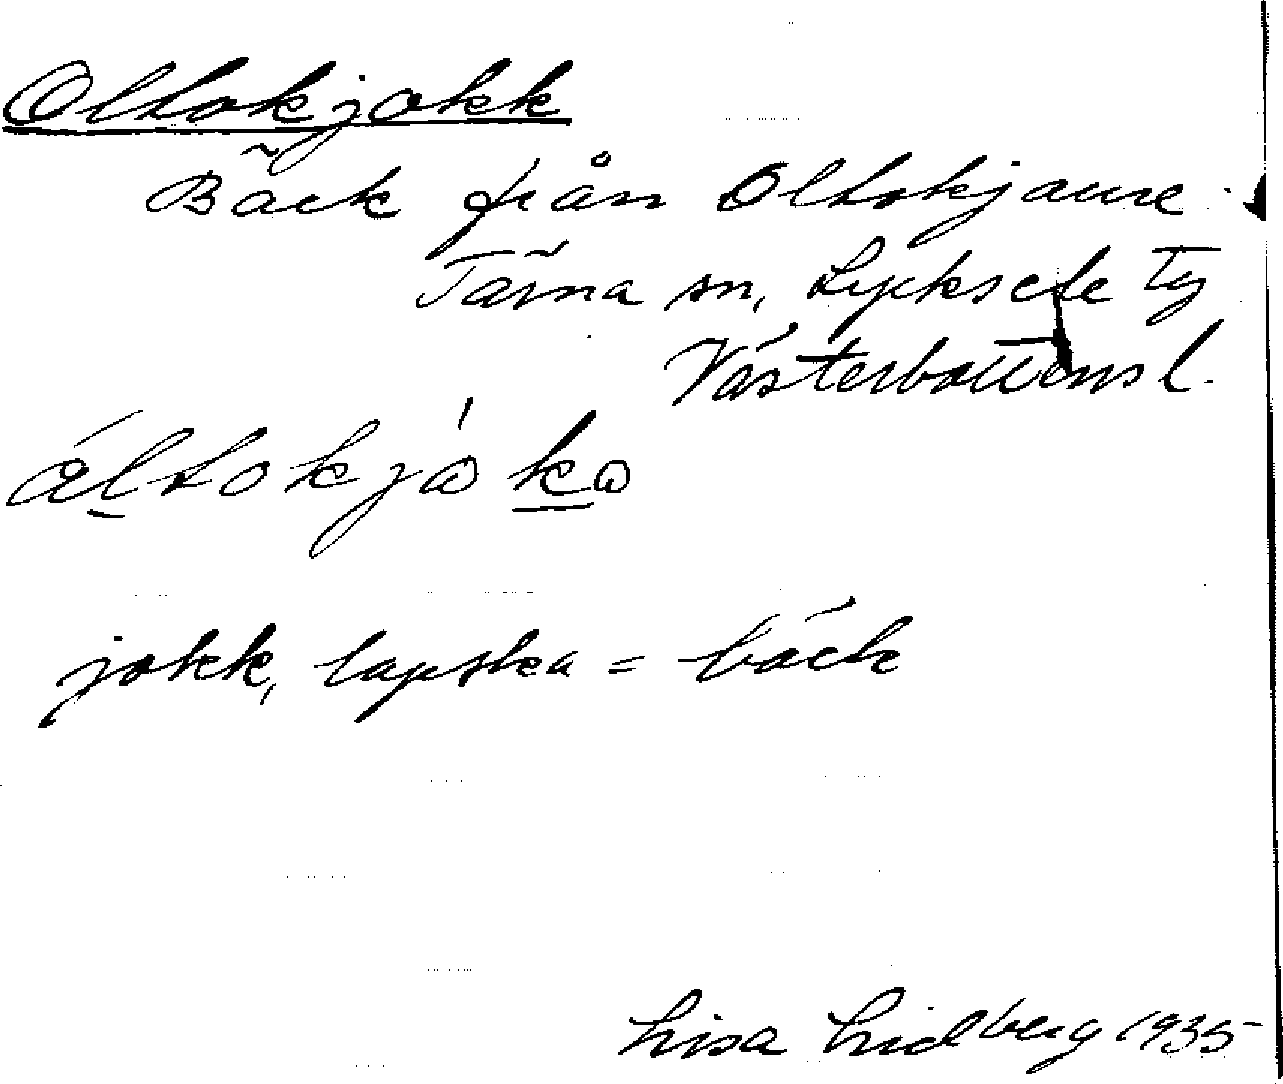 Oltokjokk
Bäck från Oltokjaure
Tärna sn, Lycksele tg
Västerbottens l.
áltokjåkɷ
jokk, lapska = bäck
Lisa Lidberg 1935